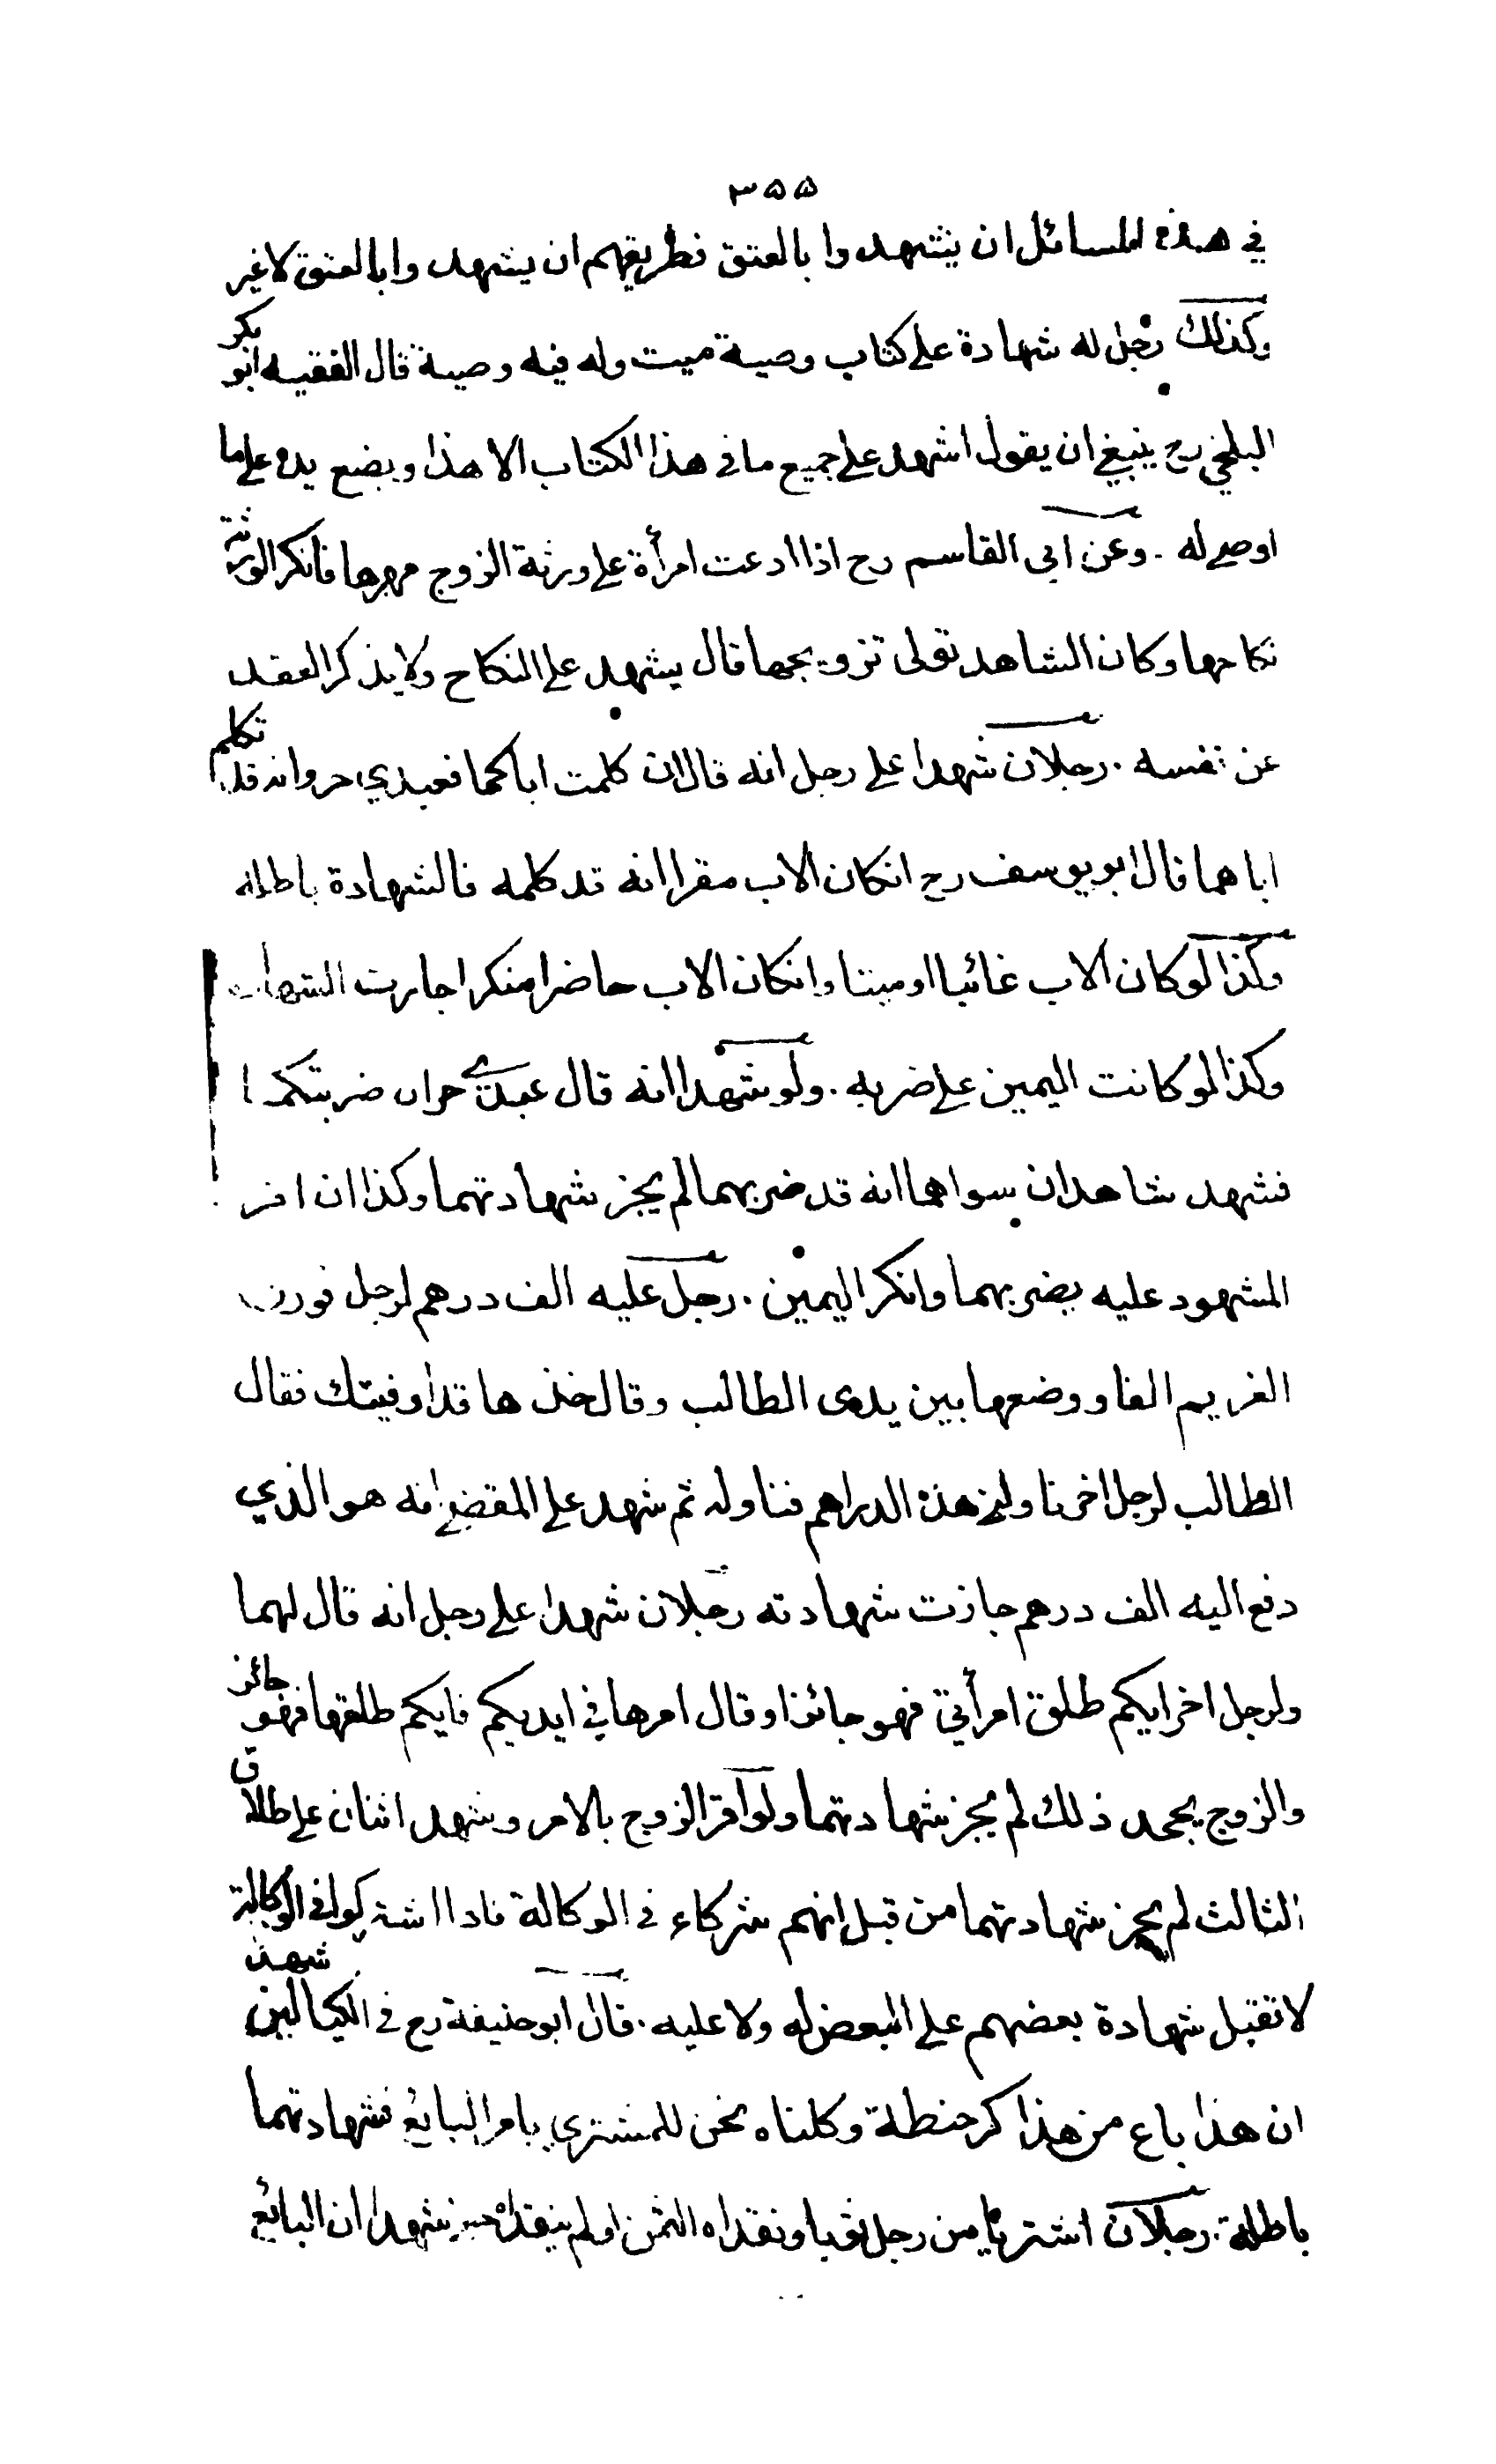 ۳۵۵
في هذه المسائل ان يشهدوا بالعتق فطريقهم ان يشهدوا بالعتق لا غير
وكذلك رجل له شهادة على كتاب وصية ميت وله فيه وصية قال الفقيه ابو بكر
البلخي رح ينبغي ان يقول اشهد على جميع ما في هذا الكتاب الا هذا ويضع يده على ما
اوصى له ـ وعن ابي القاسم رح اذا ادعت امرأة على ورثة الزوج مهرها فانكر الورثة
نكاحها وكان الشاهد تولى تزويجها قال يشهد على النكاح ولا يذكر العقد
عن نفسه . رجلان شهدا على رجل انه قال ان كلمت اباكما فعبدي حر وانه قد تكلم
اباهما قال ابو يوسف رح انكان الاب مقرا انه قد كلمه فالشهادة باطلة
وكذا لو كان الاب غائبا او ميتا وانكان الاب حاضرا منكرا جازت الشهادة
وكذا لو كانت اليمين على ضربه . ولو شهدا انه قال عبدي حر ان ضربتكما
فشهد شاهدان سواهما انه قد ضربهما لم يجز شهادتهما وكذا ان اقر
المشهود عليه بضربهما وانكر اليمين . رجل عليه الف درهم لرجل فوزن
الغريم الفا ووضعها بين يدى الطالب وقال خذها قد اوفيتك فقال
الطالب لرجل اخر ناولني هذه الدراهم فناوله ثم شهد على المقضي انه هو الذي
دفع اليه الف درهم جازت شهادته رجلان شهدا على رجل انه قال لهما
ولرجل اخر ايكم طلق امرأتي فهو جائز او قال امرها في ايديكم فايكم طلقها فهو جائز
والزوج يجحد ذلك لم يجز شهادتهما ولو اقر الزوج بالامر وشهد اثنان على طلاق
الثالث لم يجز شهادتهما من قبل انهم شركاء في الوكالة فاذا اشتركوا في الوكالة
لا تقبل شهادة بعضهم على البعض له ولا عليه . قال ابو حنيفة رح في الكيالين شهدا
ان هذا باع من هذا كر حنطة وكلناه نحن للمشتري بامر البايع فشهادتهما
باطلة . رجلان اشتريا من رجل ثوبا ونقداه الثمن او لم ينقداه حتى شهدا ان البائع